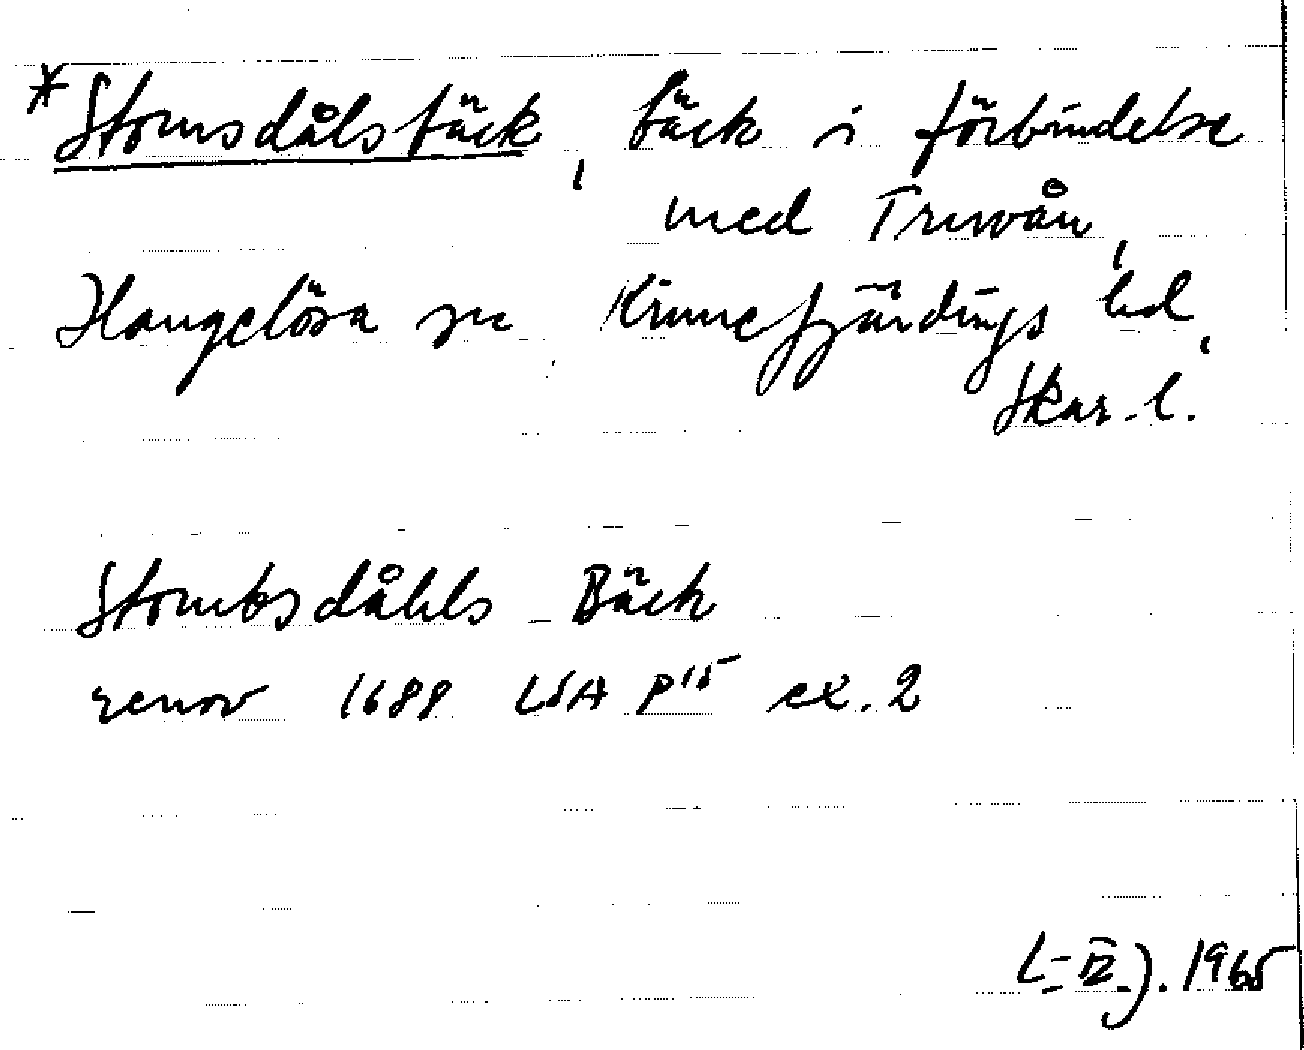 *Stomsdålsbäck, bäck i förbindelse
med Truvån,
Hangelösa sn Kinnefjärdings hd,
Skar. l.
Stombsdåhls Bäck
renov 1688 LSA P15 ex. 2
1965